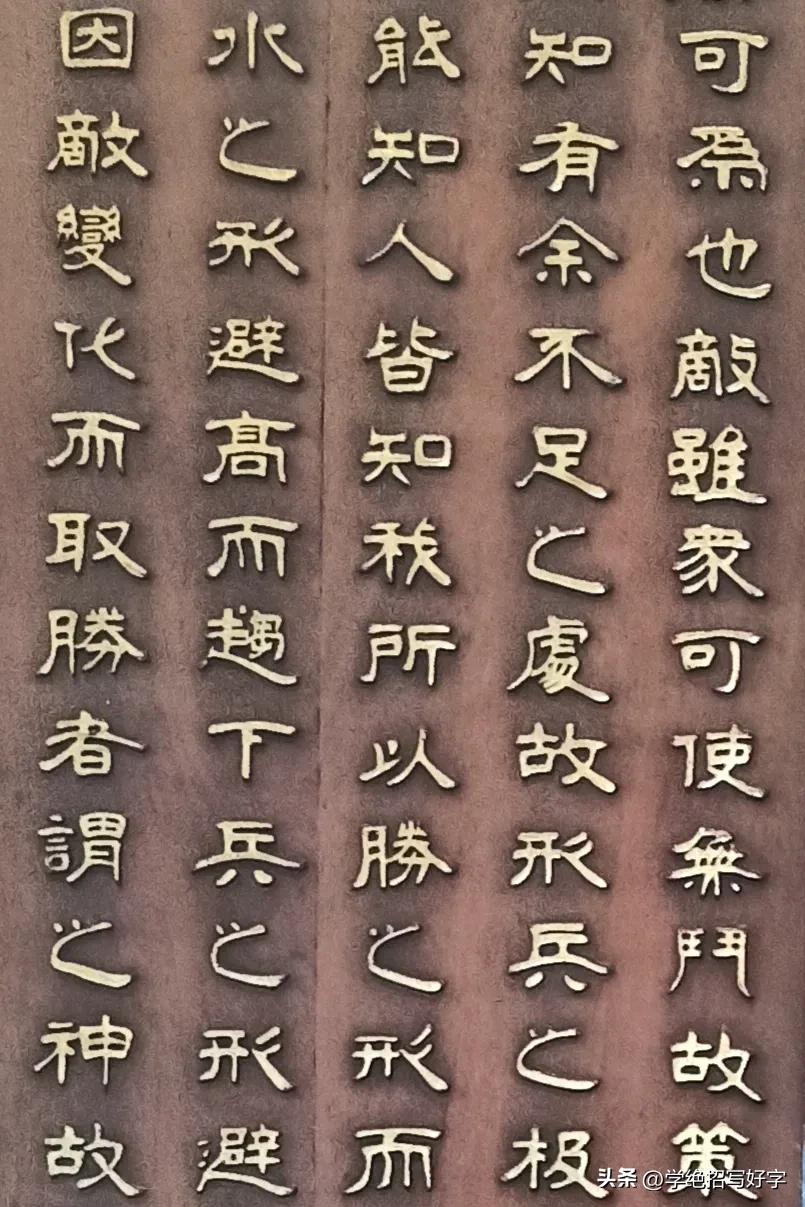 可為也敵雖衆可使無鬥故策
知有余不足之處故形兵之极
能知人皆知我所以勝之形而
水之形避高而趨下兵之形避
因敵變化而取勝者謂之神故
头条 @学绝招写好字